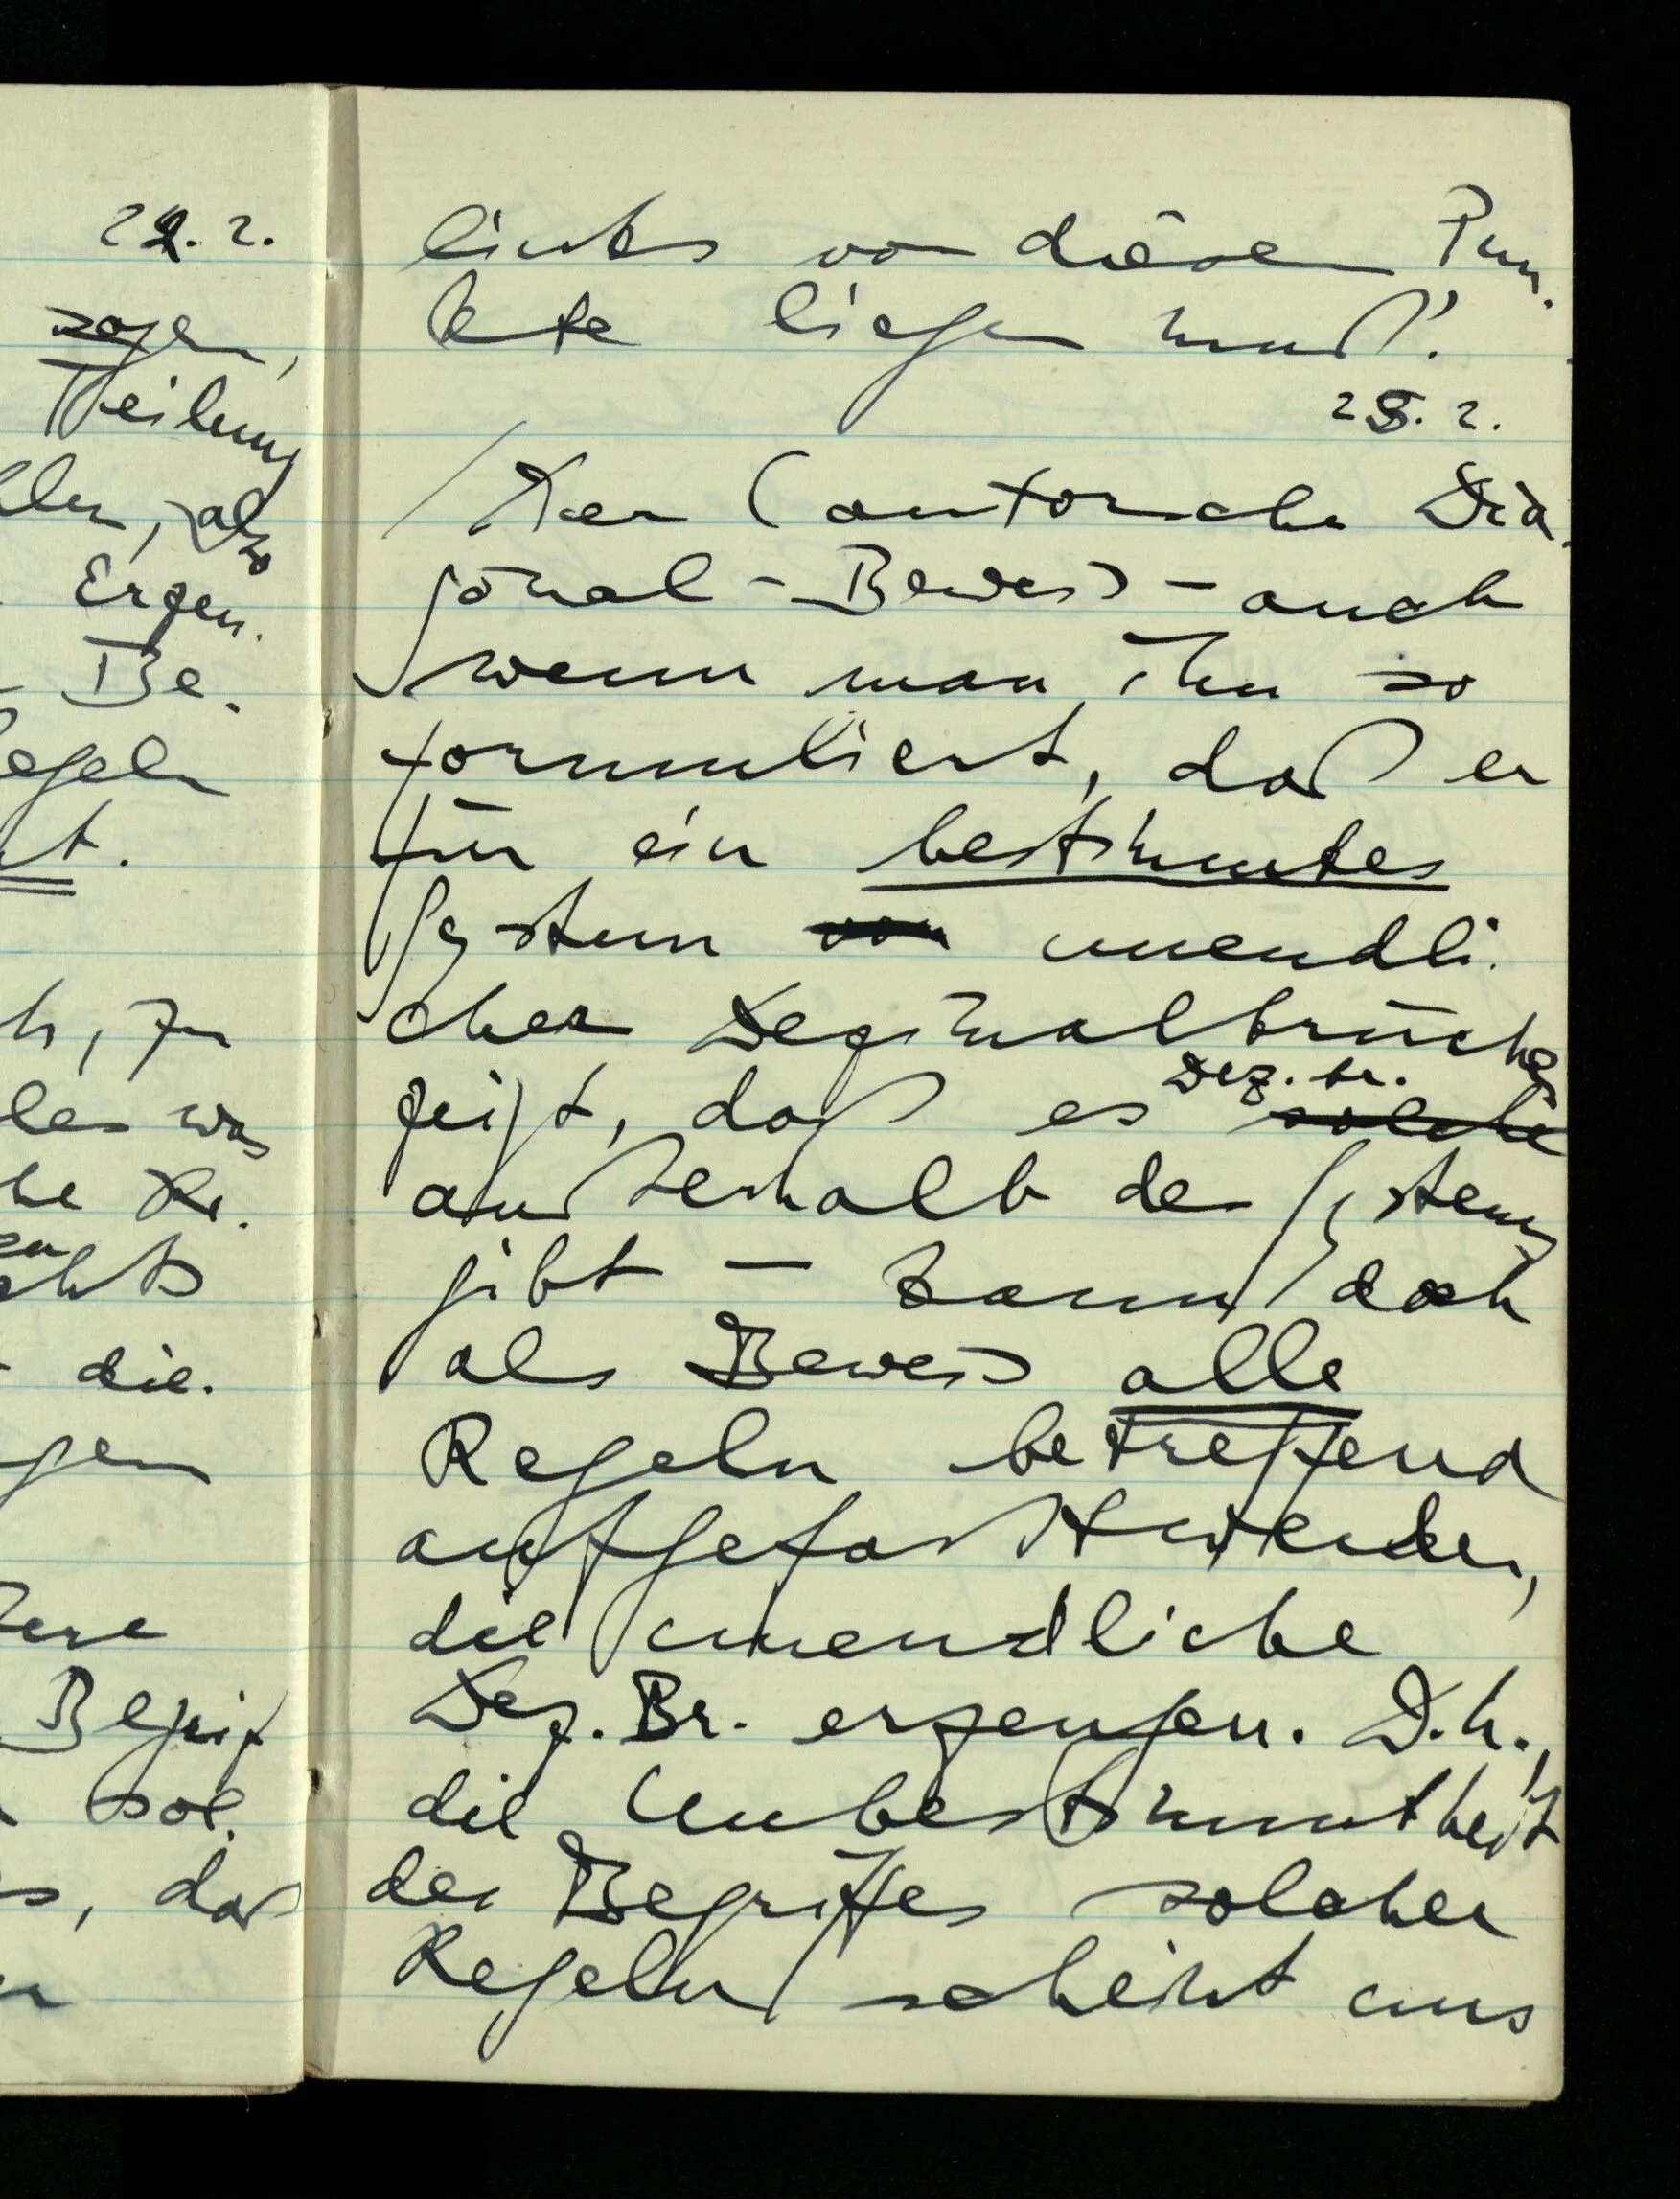 22. 2.
sagen,
Teilung
hlen, also
Erzeu-
Be-
egeln
t.
h, zu
les was
he Re-
die-
gen
Begrif
sol-
s, daß
links von diesem Pun-
kte liegen muß'.
25. 2.
/ Der Cantorsche Dia-
gonal-Beweis – auch
wenn man ihn so
formuliert, daß er
für ein bestimmtes
System von unendli-
cher Dezimalbrüche
zeigt, daß es Dez. br. solche
außerhalb des Systems
gibt – kann doch
als Beweis alle
Regeln betreffend
aufgefaßt werden,
die unendliche
Dez. Br. erzeugen. D.h.,
die Unbestimmtheit
des Begriffes solcher
Regeln scheint uns